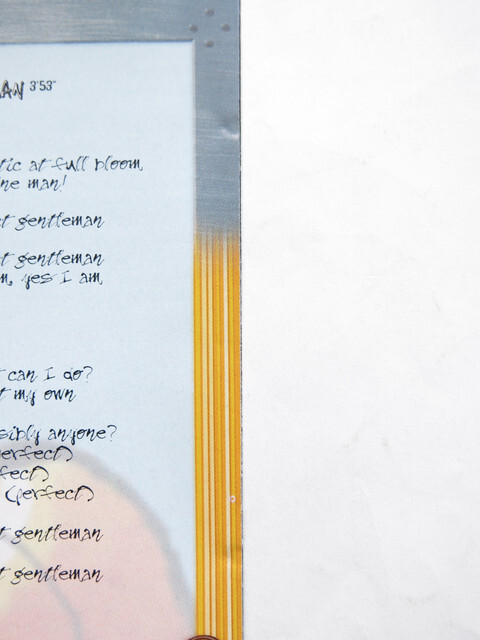 AN 3'53"
tic at full bloom
ne man!
t gentleman
t gentleman
m, yes I am
can I do?
t my own
sibly anyone?
perfect)
fect)
(perfect)
t gentleman
t gentleman